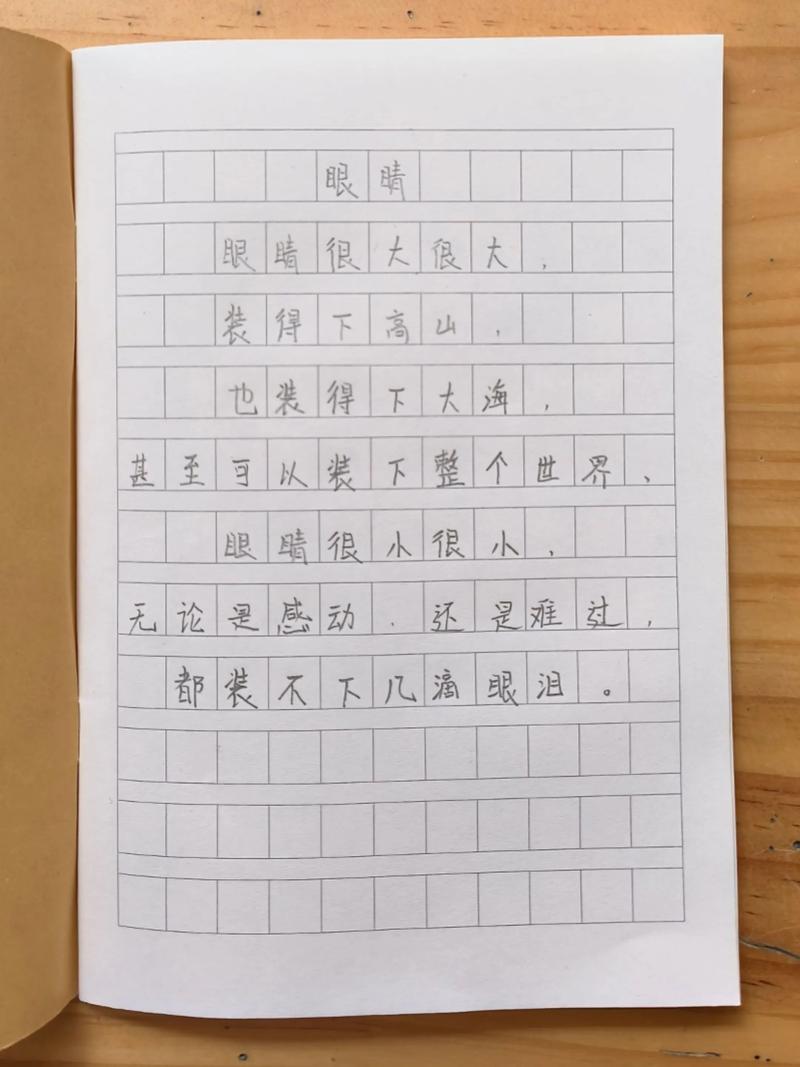 眼睛
眼睛很大很大，
装得下高山，
也装得下大海，
甚至可以装下整个世界、
眼睛很小很小，
无论是感动、还是难过，
都装不下几滴眼泪。